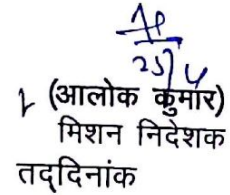 25/4
(आलोक कुमार)
मिशन निदेशक
तद्दिनांक